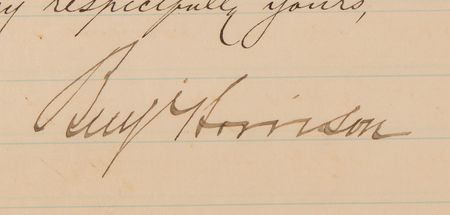 respectfully yours,
Benj Harrison